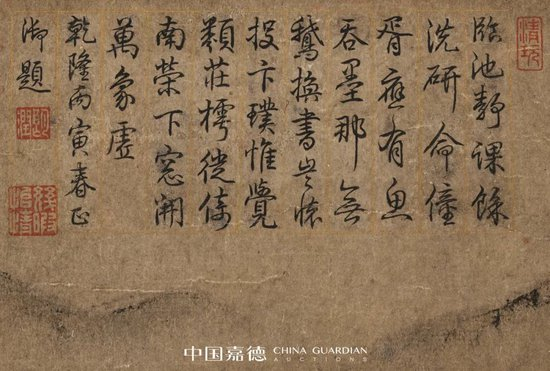 清玩
臨池靜課餘
洗研命僮
胥應有魚
吞墨那無
鵝換書豈懷
投卞璞惟覺
類莊樗徙倚
南榮下窓開
萬象虛
乾隆丙寅春正
御題
朗潤
幾暇怡情
中国嘉德 CHINA GUARDIAN
AUCTIONS